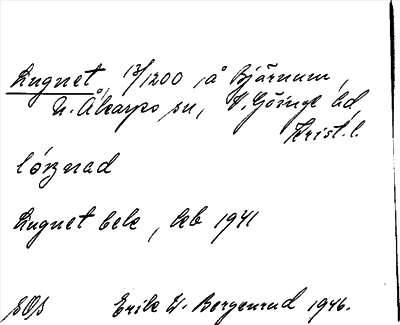 Lugnet, 13/1200, å Bjärnum,
N. Åkarps sn, V. Göinge hd,
Krist. l.
Lugnet bek, kb 1941
SOS Erik W. Bergenrud 1946.